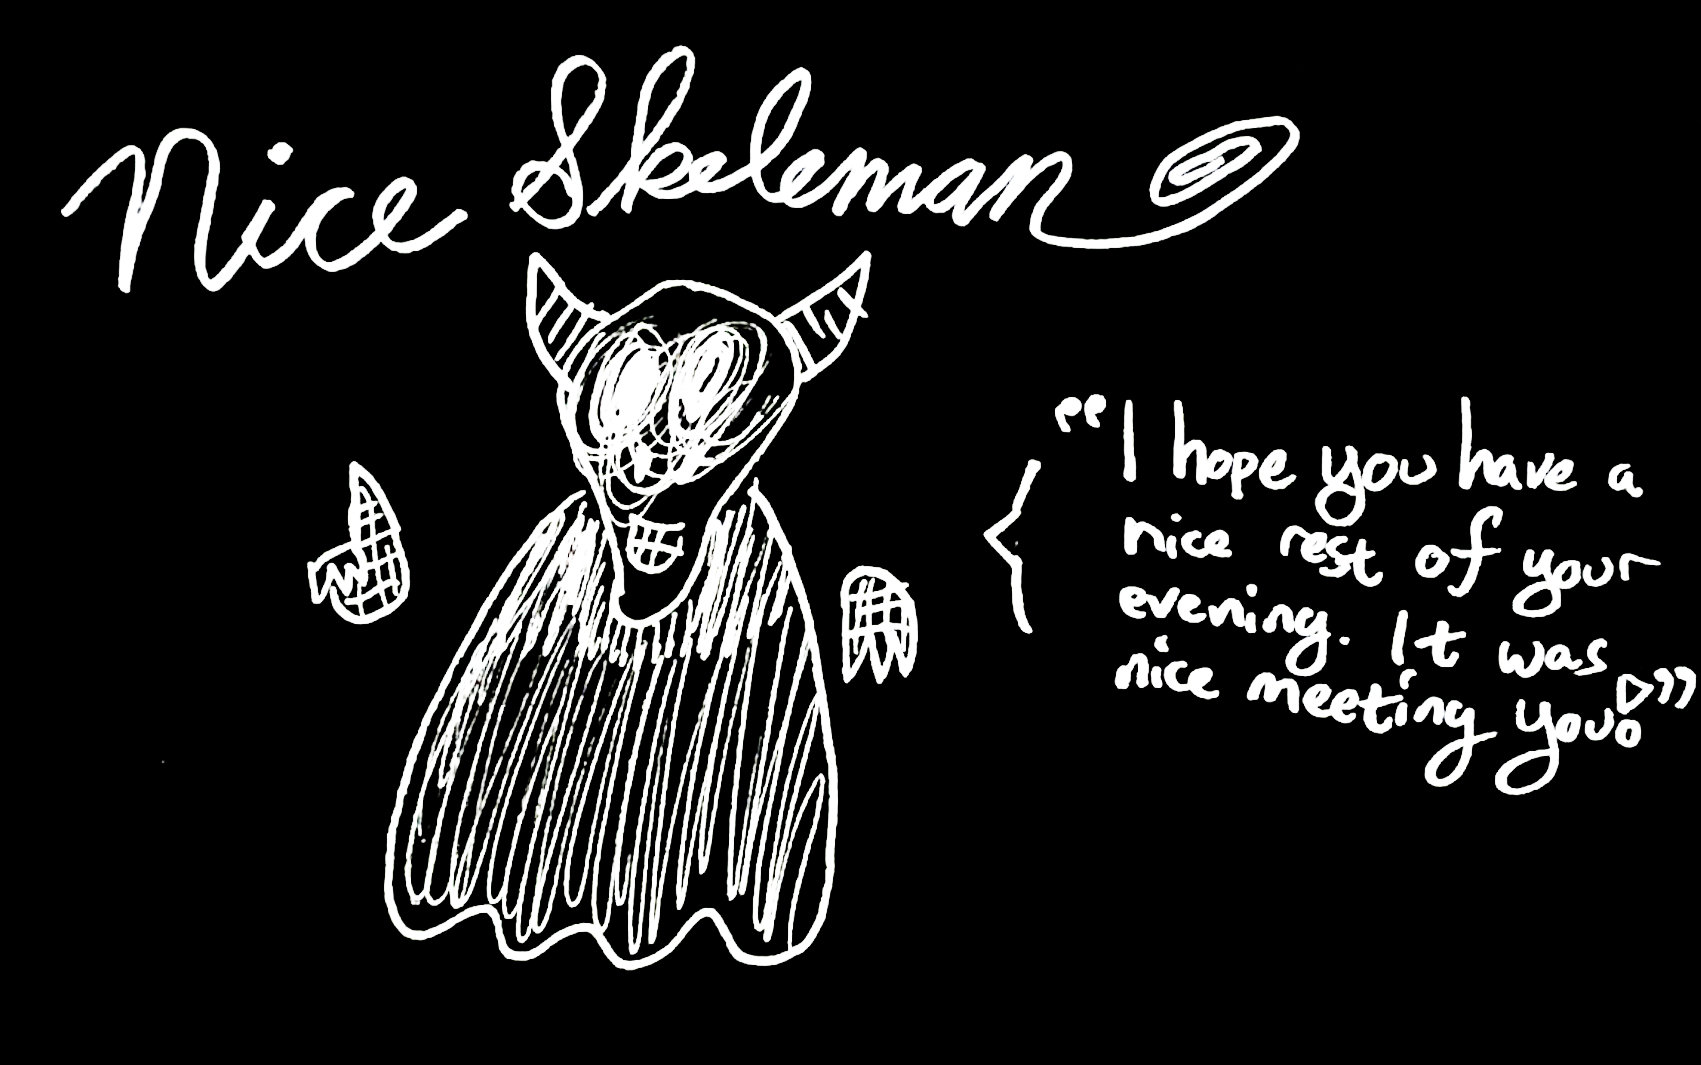 Nice Skeleman
“I hope you have a
nice rest of your
evening. It was
nice meeting you!”